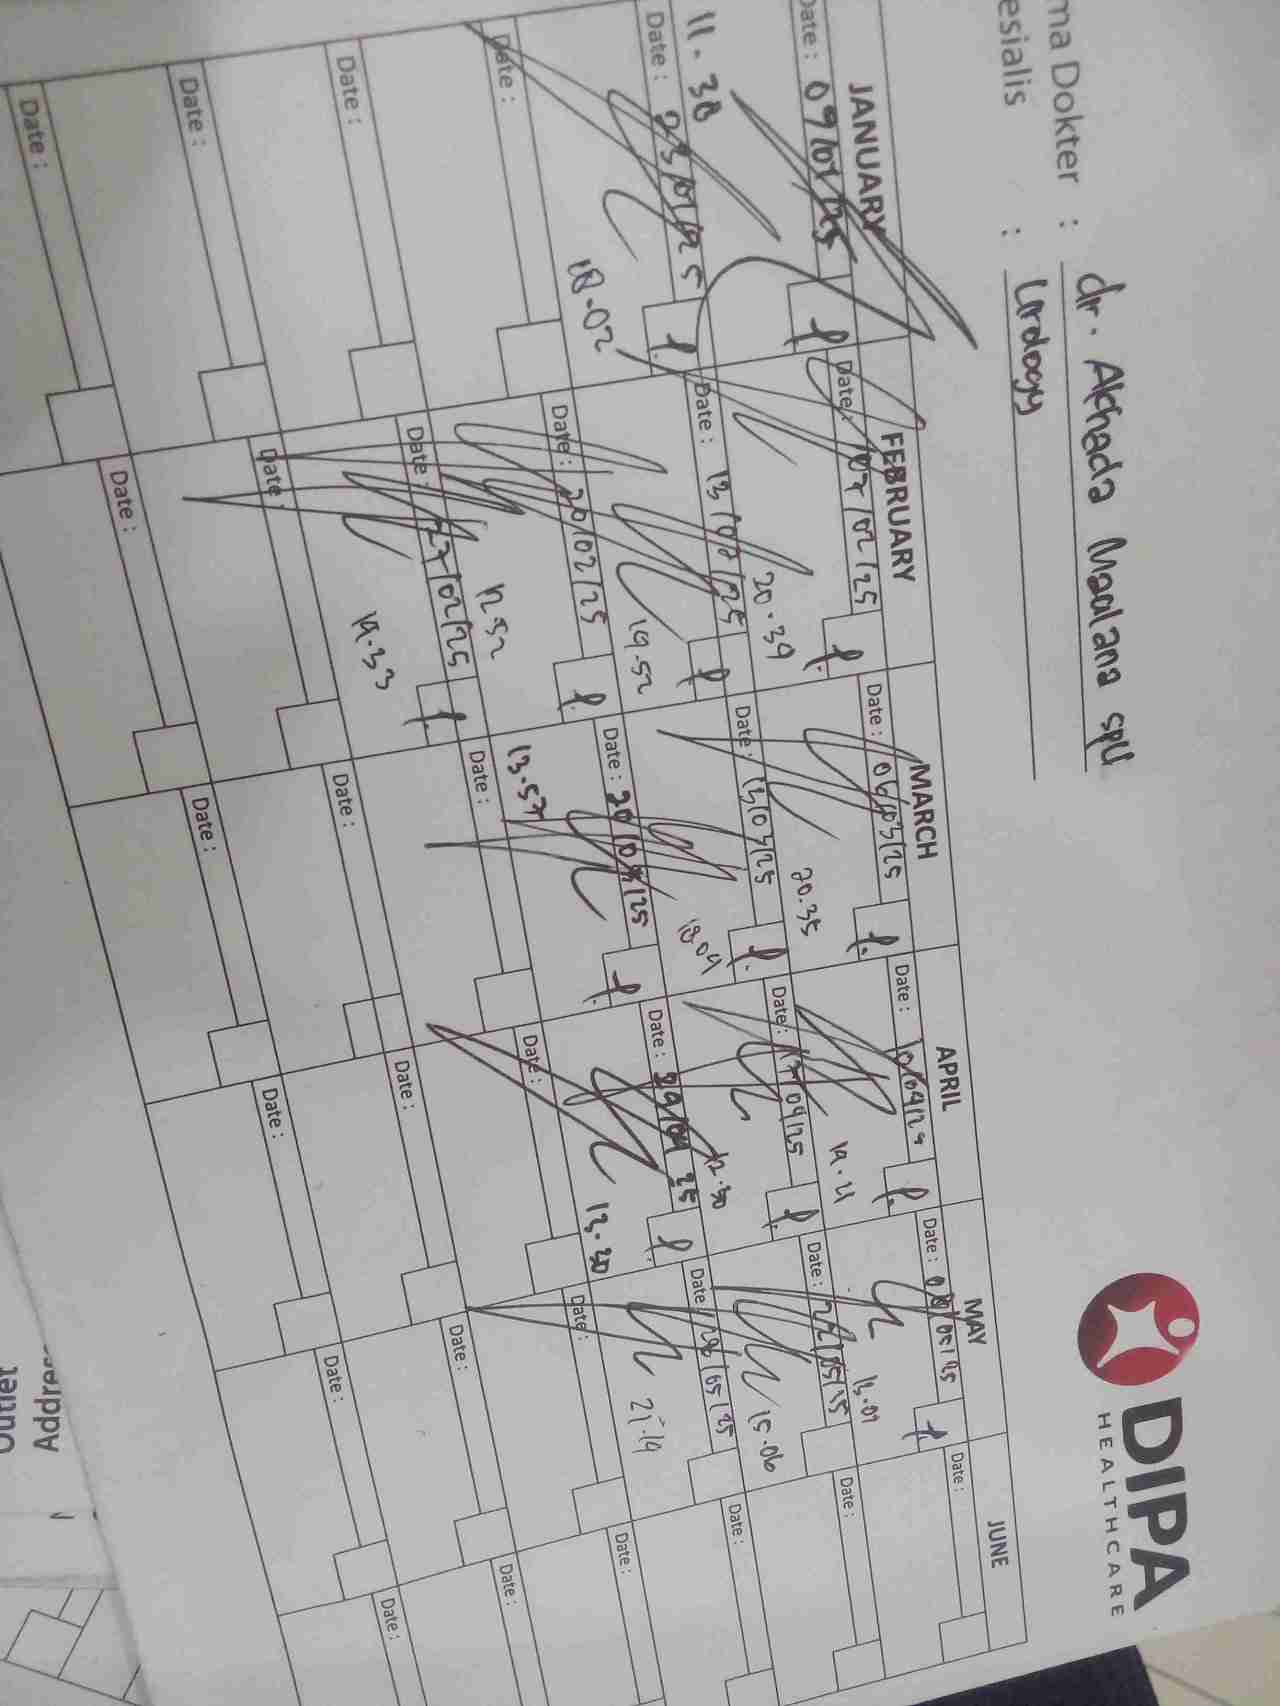 DIPA
HEALTHCARE
ma Dokter : dr. Akhada Maulana SpU
esialis : Urology
JANUARY FEBRUARY MARCH APRIL MAY JUNE
Date : 09/01/25 Date : 07/02/25 Date : 06/03/25 Date : 10/04/25 Date : 08/05/25 Date :
11.30 20.39 20.35 19.21 13.01
Date : 23/01/25 Date : 13/02/25 Date : 13/03/25 Date : 17/04/25 Date : 22/05/25 Date :
18.02 19.52 18.04 12.30 15.06
Date : Date : 20/02/25 Date : 20/03/25 Date : 24/04/25 Date : 28/05/25 Date :
12.52 13.57 13.30 21.19
Date : Date : 27/02/25 Date : Date : Date : Date :
19.33
Date : Date : Date : Date : Date : Date :
Date : Date : Date : Date : Date : Date :
Outlet
Address